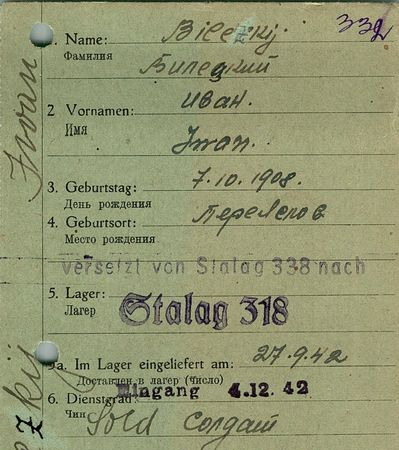 332
1. Name: Bilezkij
Фамилия Билецкий
2 Vornamen: Иван.
Имя
Iwan.
3. Geburtstag: 7.10.1908.
День рождения
4. Geburtsort:
Место рождения
versetzt von Stalag 338 nach
5. Lager: Stalag 318
Лагер
5a. Im Lager eingeliefert am: 27.9.42
Доставлен в лагер (число)
Eingang 4.12.42
6. Dienstgrad:
Чин Sold Солдат
Iwan